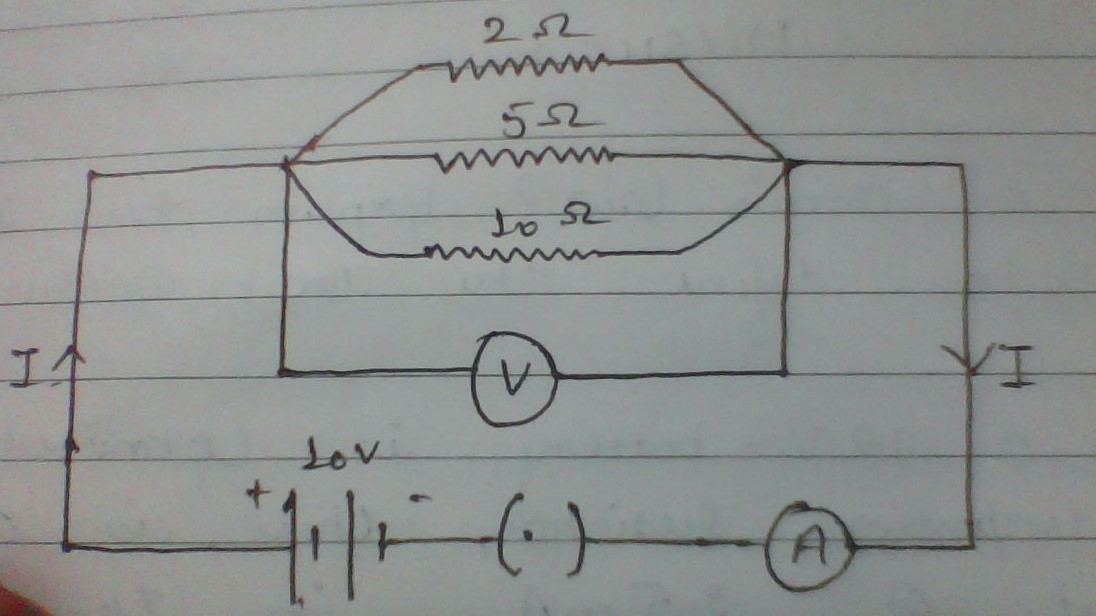 2 Ω
5 Ω
10 Ω
I
V
I
10V
+ -
A